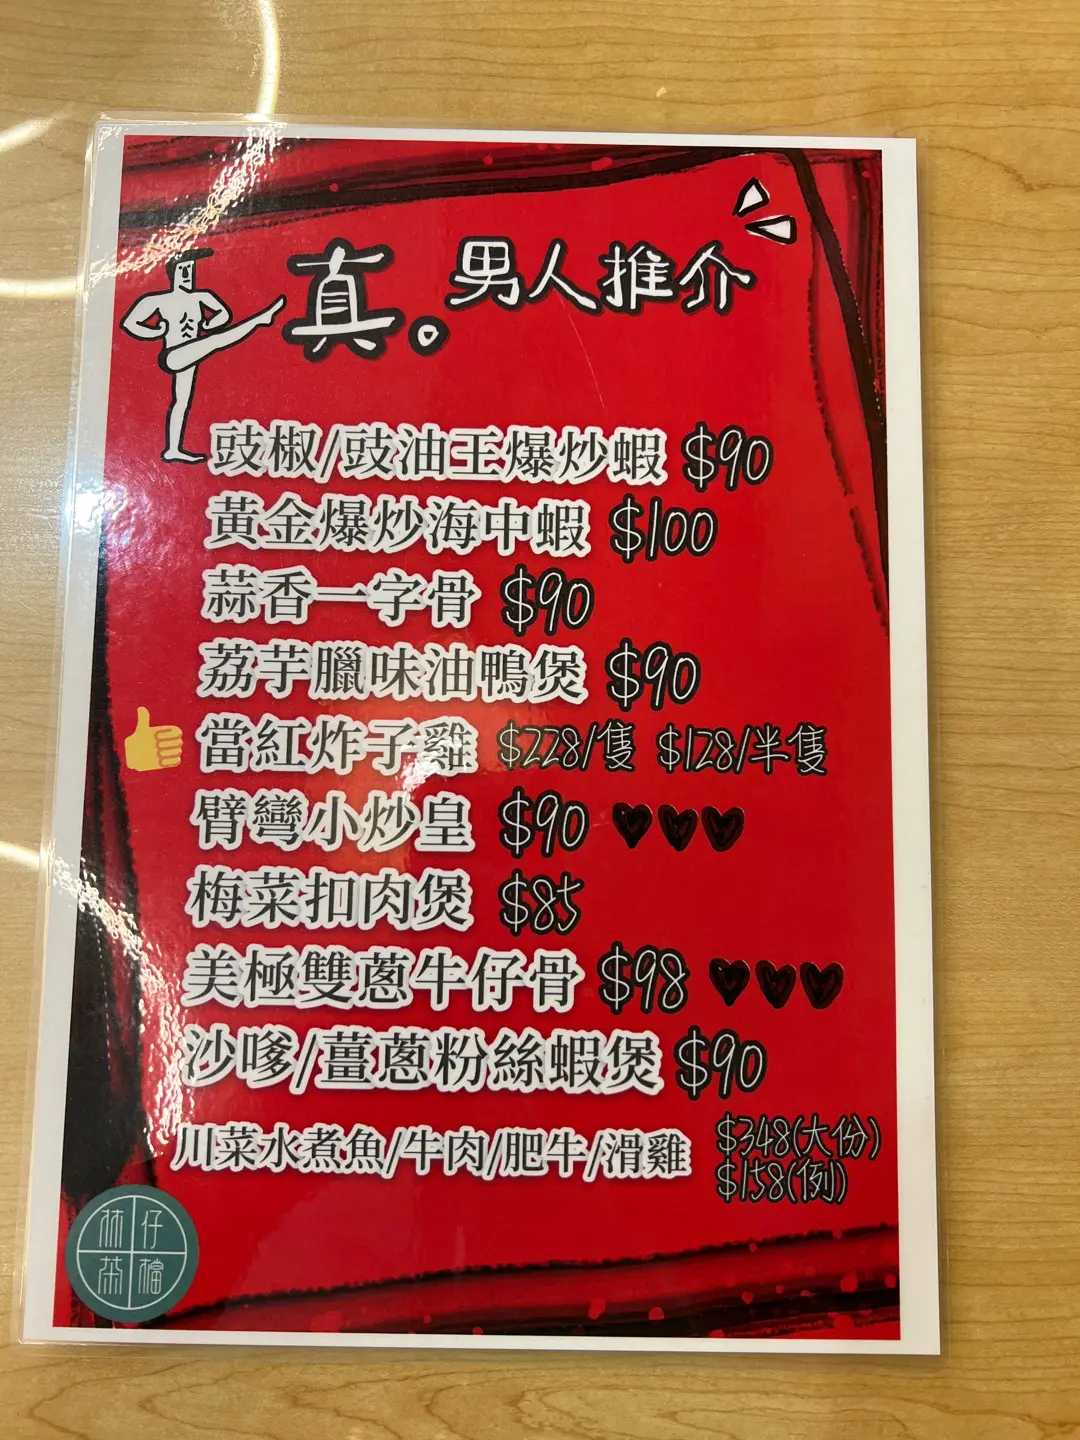 真。男人推介
豉椒/豉油王爆炒蝦 $90
黃金爆炒海中蝦 $100
蒜香一字骨 $90
荔芋臘味油鴨煲 $90
當紅炸子雞 $228/隻 $128/半隻
臂彎小炒皇 $90
梅菜扣肉煲 $85
美極雙蔥牛仔骨 $98
沙嗲/薑蔥粉絲蝦煲 $90
川菜水煮魚/牛肉/肥牛/滑雞 $348(大份)
$158(例)
仔
檔